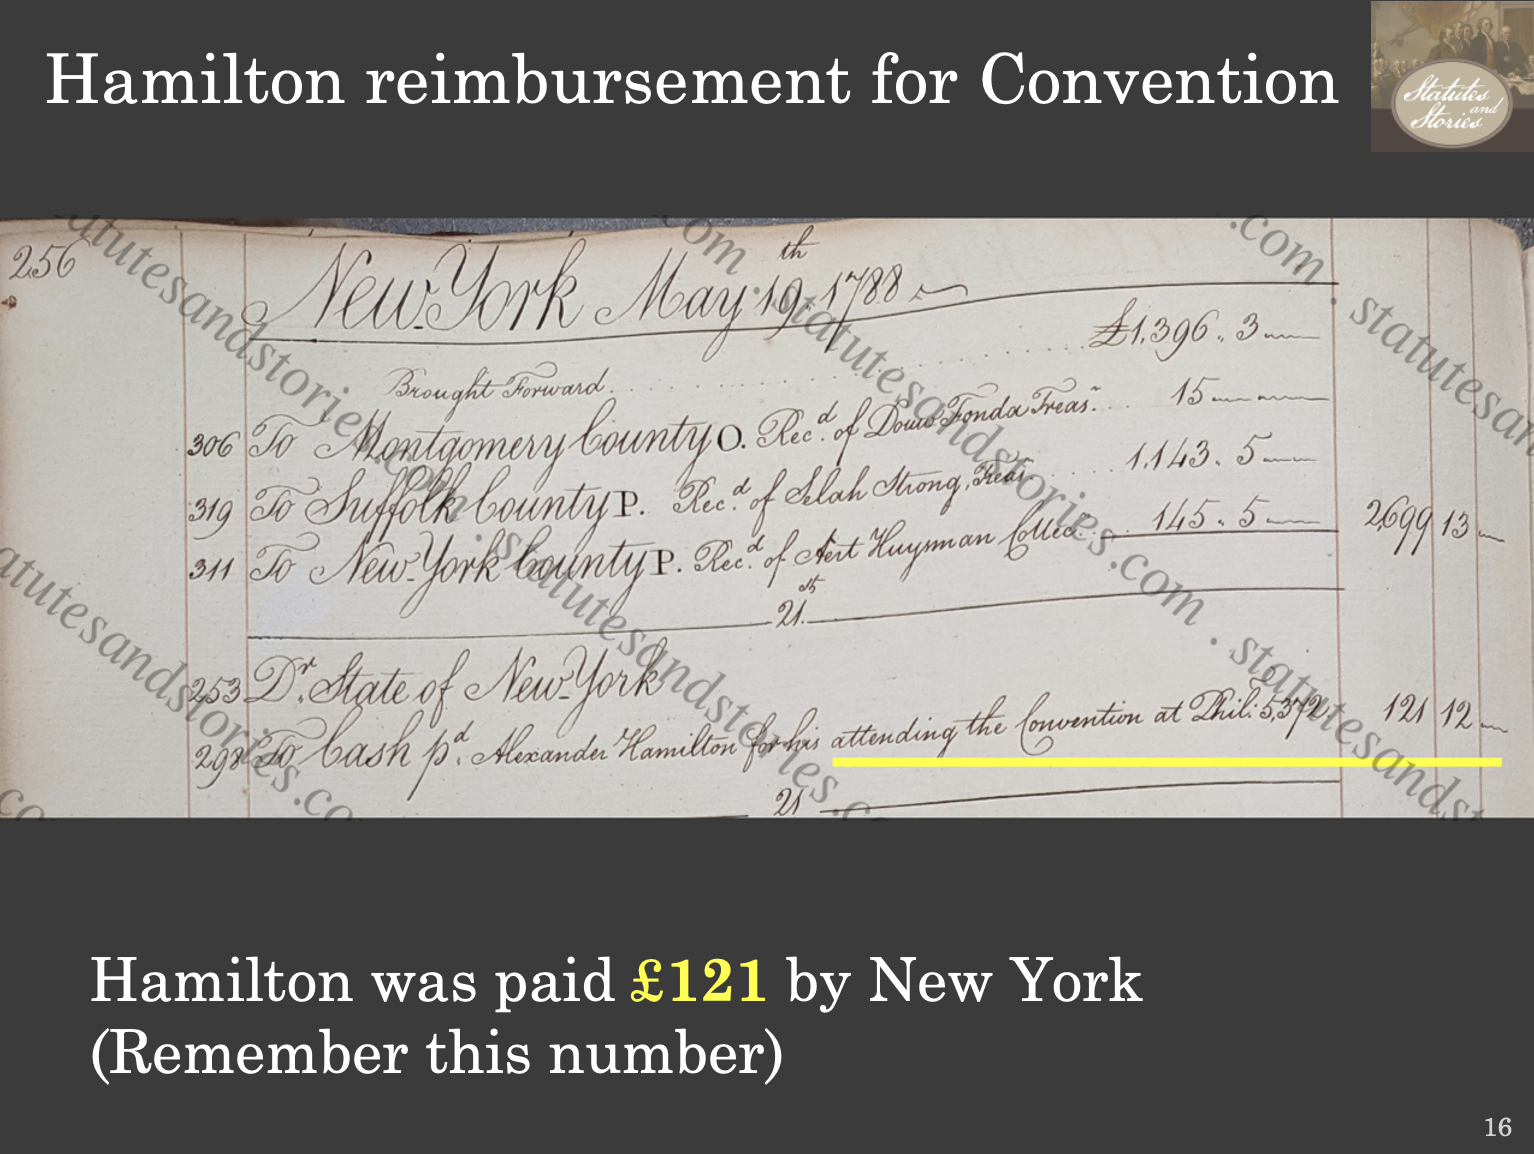 Hamilton reimbursement for Convention
Statutes
and
Stories
256
New-York May 19th, 1788
Brought Forward. £1,396. 3
306 To Montgomery County O. Recd. of Douw Fonda Treasr. 15
319 To Suffolk County P. Recd. of Selah Strong, Treasr. 1.143. 5
311 To New-York County P. Recd. of Huysman Collec 145. 5 2699 13
21st
253 Dr. State of New-York
298 To Cash pd. Alexander Hamilton for his attending the Convention at Phil: 5,372 121 12
21
statutesandstories.com . statutesandstories.com . statutesandstories.com
Hamilton was paid £121 by New York
(Remember this number)
16